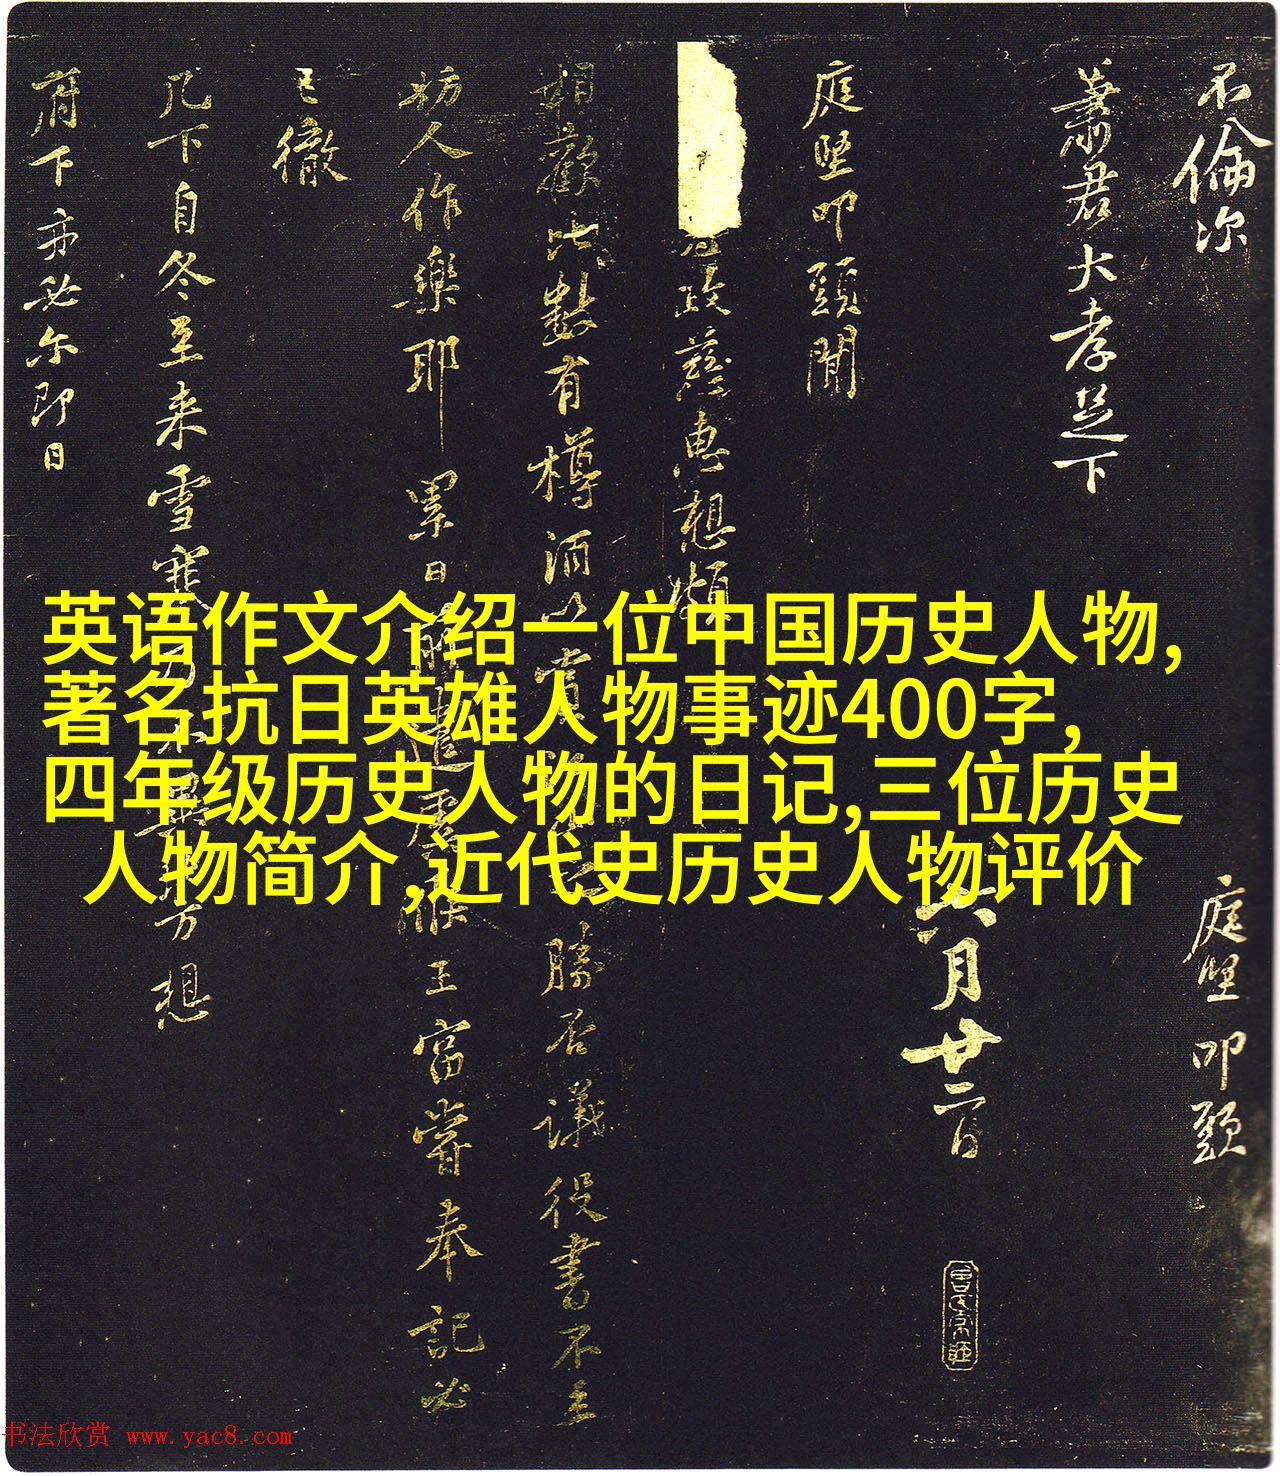 不倫次
庭堅叩頭
蕭君大孝足下
六月廿二日
庭堅叩頭聞
政慈惠想
相歡此數有樽酒
勝否議役書不至
人作樂耶累日
王富嘗奉記必
已徹
几下自冬至来雪寒
方想
府下亦必尔即日
英语作文介绍一位中国历史人物,
著名抗日英雄人物事迹400字,
四年级历史人物的日记,三位历史
人物简介,近代史历史人物评价
书法欣赏 www.yac8.com